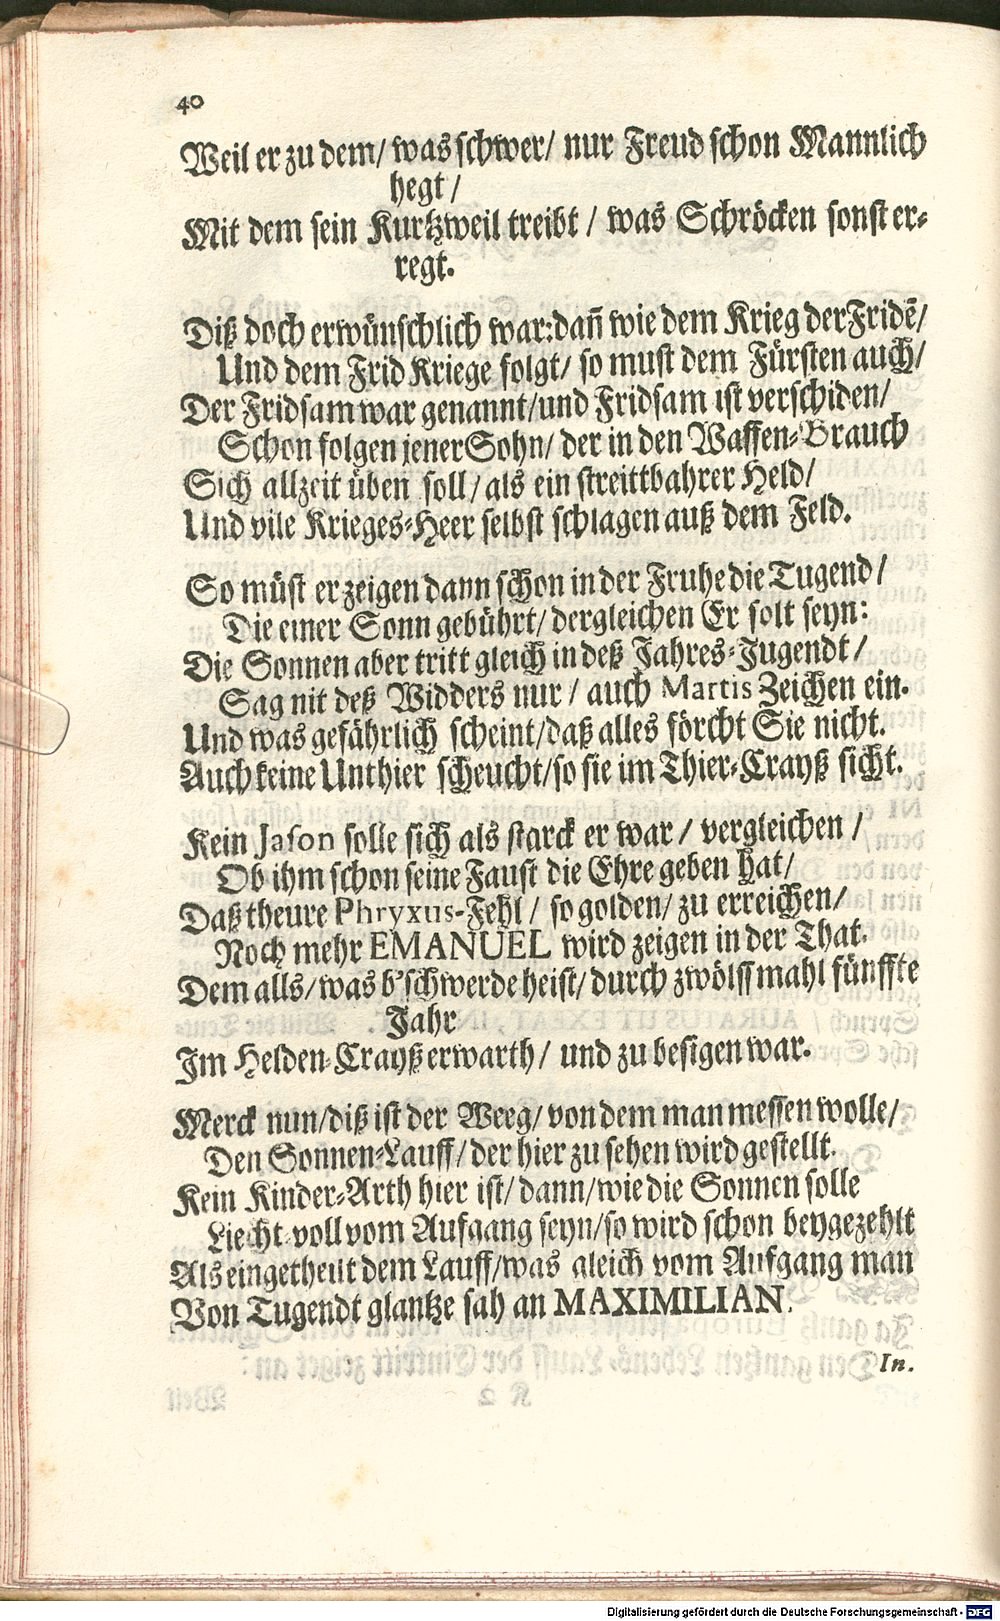 40
Weil er zu dem/ was schwer/ nur Freud schon Mannlich
hegt /
Mit dem sein Kurtzweil treibt / was Schröcken sonst er-
regt.
Diß doch erwünschlich war: dañ wie dem Krieg der Fridē/
Und dem Frid Kriege folgt/ so must dem Fürsten auch/
Der Fridsam war genannt/ und Fridsam ist verschiden/
Schon folgen jener Sohn/ der in den Waffen-Brauch
Sich allzeit üben soll/ als ein streittbahrer Held/
Und vile Krieges-Heer selbst schlagen auß dem Feld.
So müst er zeigen dann schon in der Fruhe die Tugend/
Die einer Sonn gebührt/ dergleichen Er solt seyn:
Die Sonnen aber tritt gleich in deß Jahres-Jugendt/
Sag nit deß Widders nur / auch Martis Zeichen ein.
Und was gefährlich scheint/ daß alles förcht Sie nicht.
Auch keine Unthier scheucht/ so sie im Thier-Crayß sicht.
Kein Jason solle sich als starck er war / vergleichen /
Ob ihm schon seine Faust die Ehre geben hat/
Daß theure Phryxus-Fehl / so golden/ zu erreichen/
Noch mehr EMANUEL wird zeigen in der That.
Dem alls/ was b'schwerde heist/ durch zwölff mahl fünffte
Jahr
Im Helden-Crayß erwarth/ und zu besigen war.
Merck nun/ diß ist der Weeg/ von dem man messen wolle/
Den Sonnen-Lauff/ der hier zu sehen wird gestellt.
Kein Kinder-Arth hier ist/ dann/ wie die Sonnen solle
Liecht-voll vom Aufgang seyn/ so wird schon beygezehlt
Als eingetheilt dem Lauff/ was gleich vom Aufgang man
Von Tugendt glantze sah an MAXIMILIAN.
In.
Digitalisierung gefördert durch die Deutsche Forschungsgemeinschaft - DFG